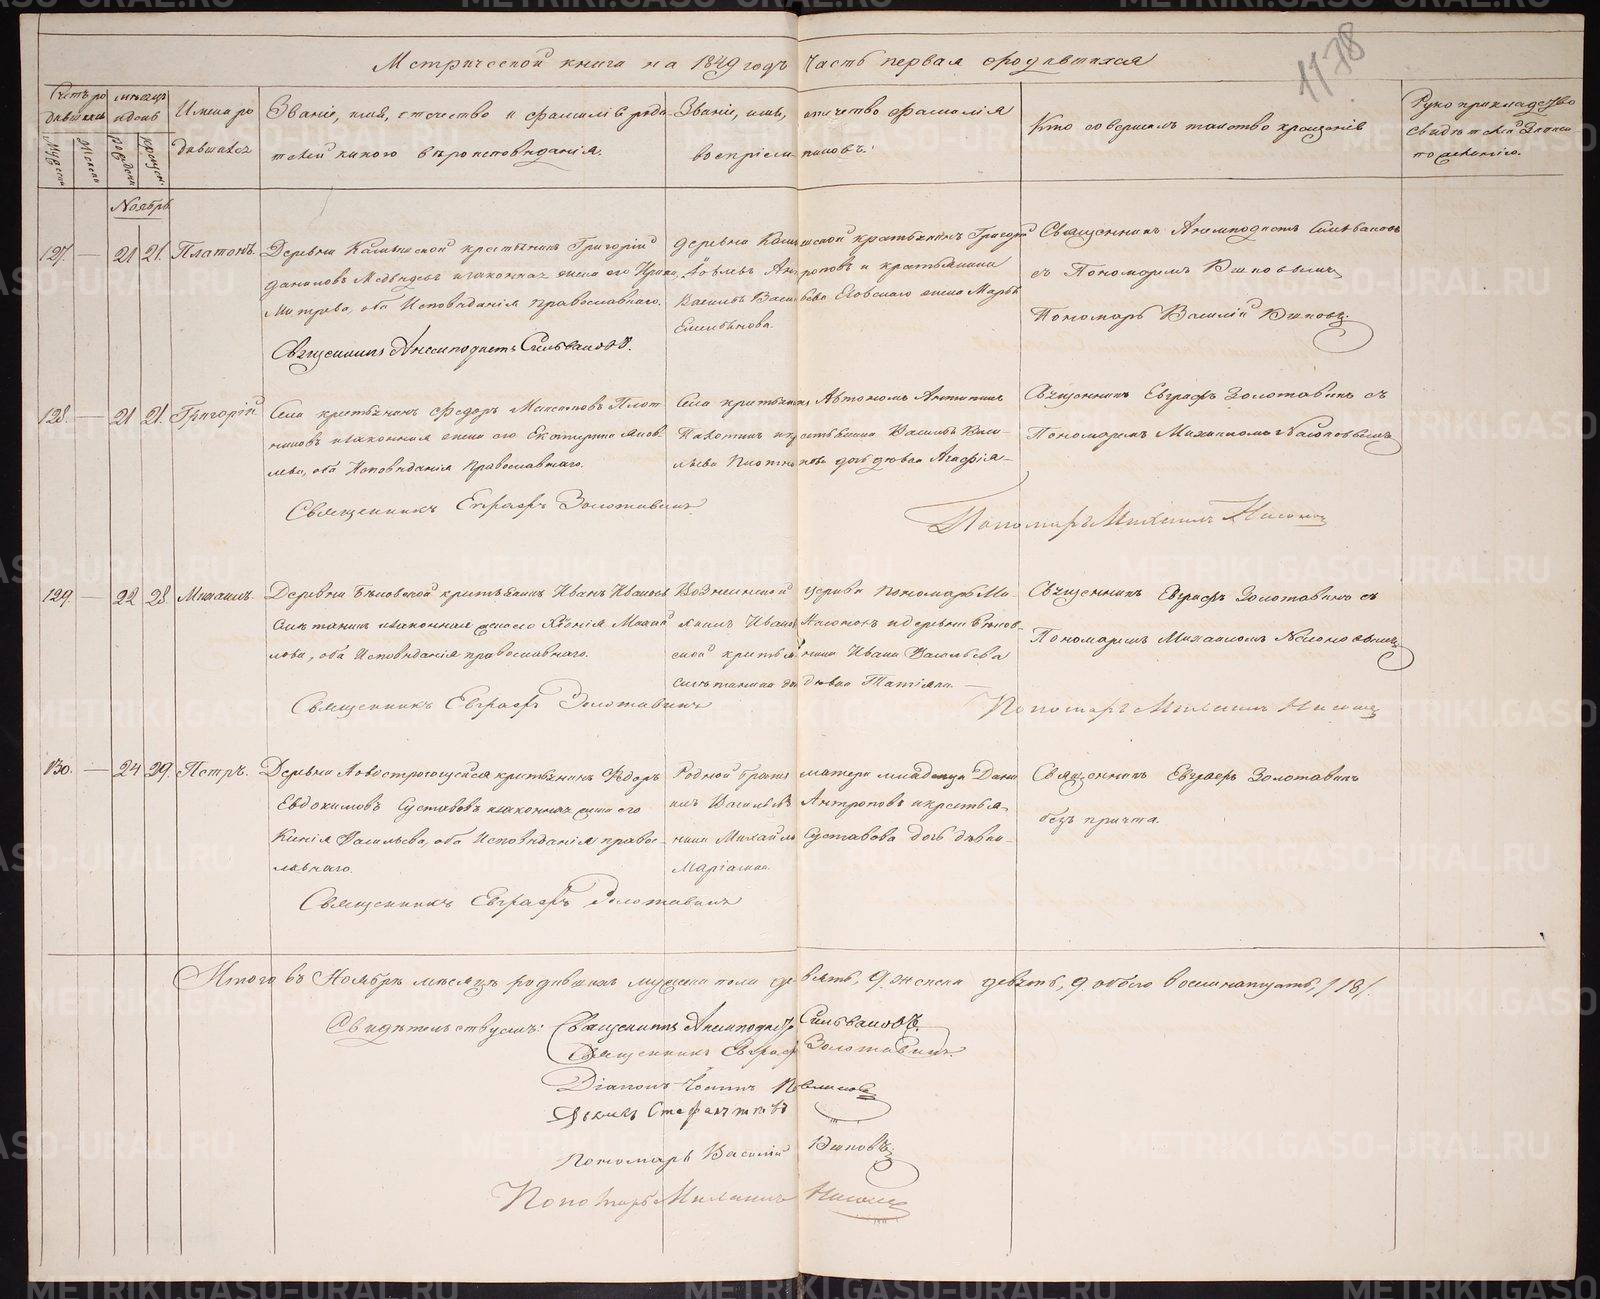 Метрической книги на 1849 годъ Часть первая о родившихся
1178
Счетъ родившихся
Мужеска
Женска
Мѣсяцъ и день
Рожденія
Крещен.
Имена родившихся
Званіе, имя, отчество и фамилія родителей и какого вѣроисповѣданія.
Званіе, имя, отчество фамилія воспріемниковъ.
Кто совершалъ таинство крещенія
Рукоприкладство свидѣтелей записи по желанію.
Ноябрь
127. — 21 21. Платонъ.
Деревни крестьянинъ Григорій
Даниловъ Медвѣдевъ и законная жена его Ирина
Дмитрева, оба Исповѣданія православнаго.
Священникъ Анемподистъ Сильвановъ.
деревни крестьянинъ Григорій
Антроповъ и крестьянина
Василья Васильева жена Марья
Емельянова.
Священникъ Анемподистъ Сильвановъ
съ Пономаремъ
Пономарь Василій
128. — 21 21. Григорій
Села крестьянинъ Федоръ Максимовъ Плот
никовъ и законная жена его Екатерина Яков
лева, оба Исповѣданія Православнаго.
Священникъ Евграфъ Золотавинъ
Села крестьянинъ Автономъ Антипинъ
Пахотинъ и крестьянина Василья Васи-
льева Плотникова дочь дѣвка Агафія
Священникъ Евграфъ Золотавинъ съ
Пономаремъ Михаиломъ Насоновымъ
Пономарь Михаилъ Насоновъ
129. — 22 28. Михаилъ.
Деревни Бѣловской крестьянинъ Иванъ Ивановъ
Сметанинъ и законная жена его Ксенія Михай
лова, оба Исповѣданія православнаго.
Священникъ Евграфъ Золотавинъ
церкви пономарь Ми-
хаилъ Ивановъ Насоновъ и деревни Бѣлов-
ской крестьянина Ивана Васильева
Сметанина дѣвка Татіяна.
Священникъ Евграфъ Золотавинъ съ
Пономаремъ Михаиломъ Насоновымъ
Пономарь Михаилъ Насоновъ
130. — 24 29. Петръ.
Деревни Новостроющейся крестьянинъ Федоръ
Евдокимовъ Суставовъ и законная жена его
Ксенія Васильева, оба Исповѣданія правос-
лавнаго.
Священникъ Евграфъ Золотавинъ
Родной братъ матери младенца Дани
илъ Васильевъ Антроповъ и крестья-
нина Михайла Суставова дочь дѣвка
Маріамна.
Священникъ Евграфъ Золотавинъ
безъ причта.
Итого въ Ноябрѣ мѣсяцѣ родившихся мужеска пола девять, 9. женска девять, 9. обоего восемнатцать, /18/.
Свидѣтельствуемъ: Священникъ Анемподистъ Сильвановъ.
Священникъ Евграфъ Золотавинъ.
Діаконъ
Дьячекъ
Пономарь Василій
Пономарь Михаилъ Насоновъ
METRIKI.GASO-URAL.RU